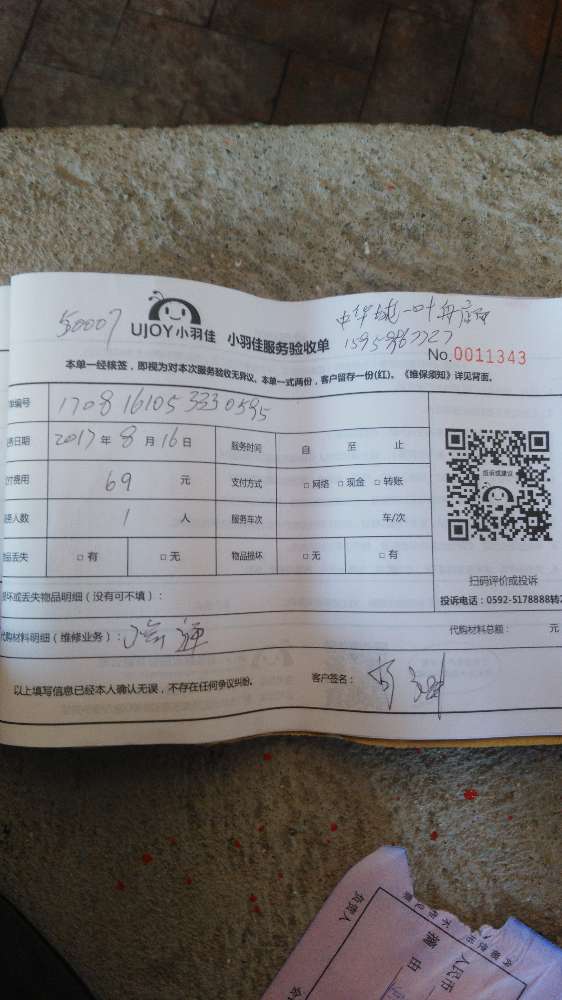 50007
UJOY小羽佳 小羽佳服务验收单
No.0011343
本单一经核签，即视为对本次服务验收无异议。本单一式两份，客户留存一份(红)。《维保须知》详见背面。
单编号 1708161053330595
务日期 2017年8月16日 服务时间 自 至 止
付费用 69 元 支付方式 □网络 □现金 □转账
务人数 1 人 服务车次 车/次
物品丢失 □有 □无 物品损坏 □无 □有
投诉或建议
扫码评价或投诉
投诉电话：0592-5178888转2
损坏或丢失物品明细（没有可不填）：
代购材料明细（维修业务）： 代购材料总额： 元
以上填写信息已经本人确认无误，不存在任何争议纠纷。 客户签名：
负责人
人民币